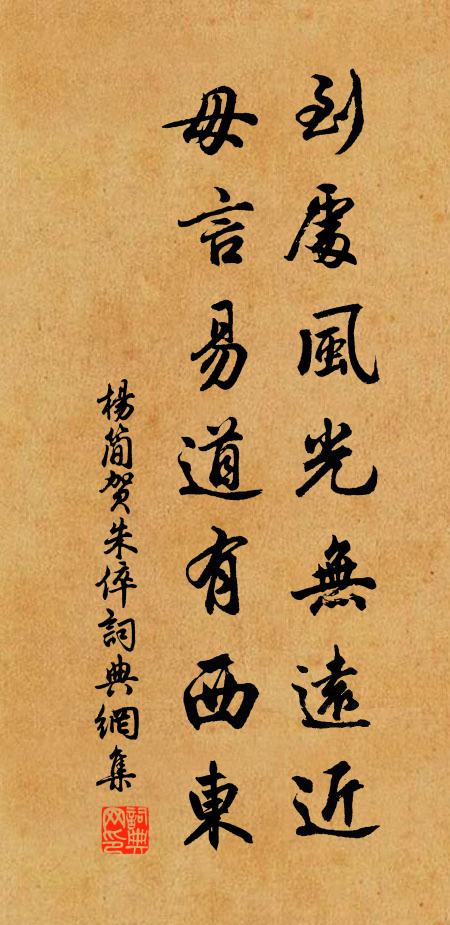 到處風光無遠近
毋言易道有西東
楊簡賀朱倅詞典網集
詞典网印